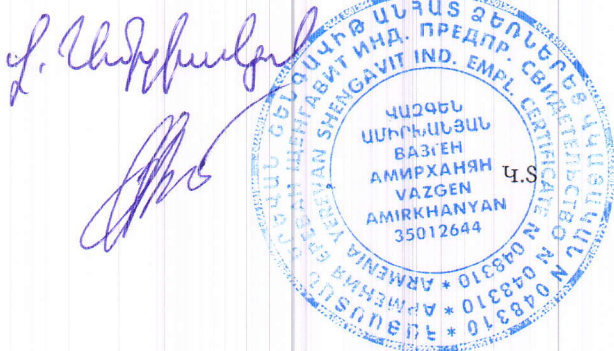 Վ. Ամիրխանյան
ՀԱՅԱՍՏԱՆ ԵՐԵՎԱՆ ՇԵՆԳԱՎԻԹ ԱՆՀԱՏ ՁԵՌՆԵՐԵՑ ՎԿԱՅԱԿԱՆ N 048310 *
АРМЕНИЯ ЕРЕВАН ШЕНГАВИТ ИНД. ПРЕДПР. СВИДЕТЕЛЬСТВО N 048310 *
ARMENIA YEREVAN SHENGAVIT IND. EMPL. CERTIFICATE N 048310 *
ՎԱԶԳԵՆ
ԱՄԻՐԽԱՆՅԱՆ
ВАЗГЕН
АМИРХАНЯН
VAZGEN
AMIRKHANYAN
35012644
Կ.Տ